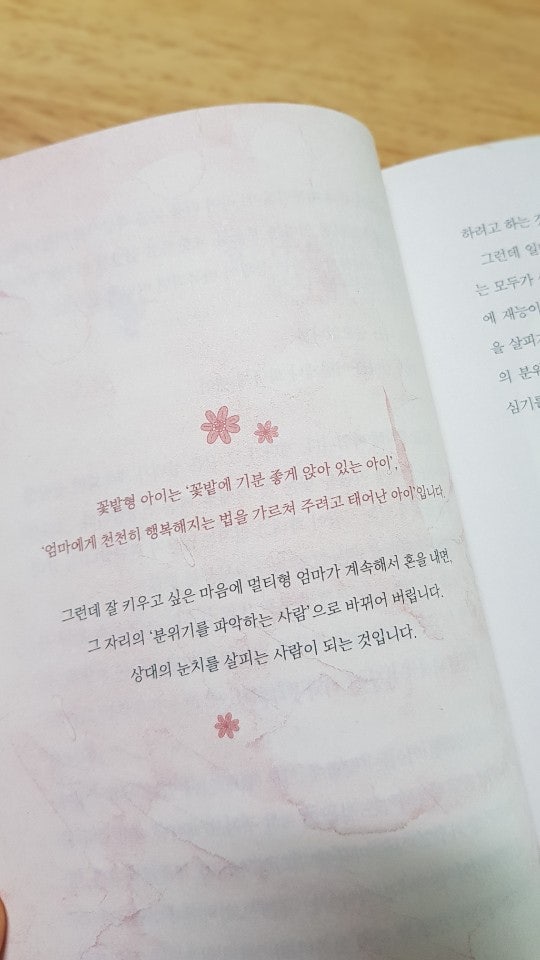 꽃밭형 아이는 '꽃밭에 기분 좋게 앉아 있는 아이',
'엄마에게 천천히 행복해지는 법을 가르쳐 주려고 태어난 아이'입니다.
그런데 잘 키우고 싶은 마음에 멀티형 엄마가 계속해서 혼을 내면,
그 자리의 '분위기를 파악하는 사람'으로 바뀌어 버립니다.
상대의 눈치를 살피는 사람이 되는 것입니다.
하려고 하는
그런데
는 모두가
에
을
의